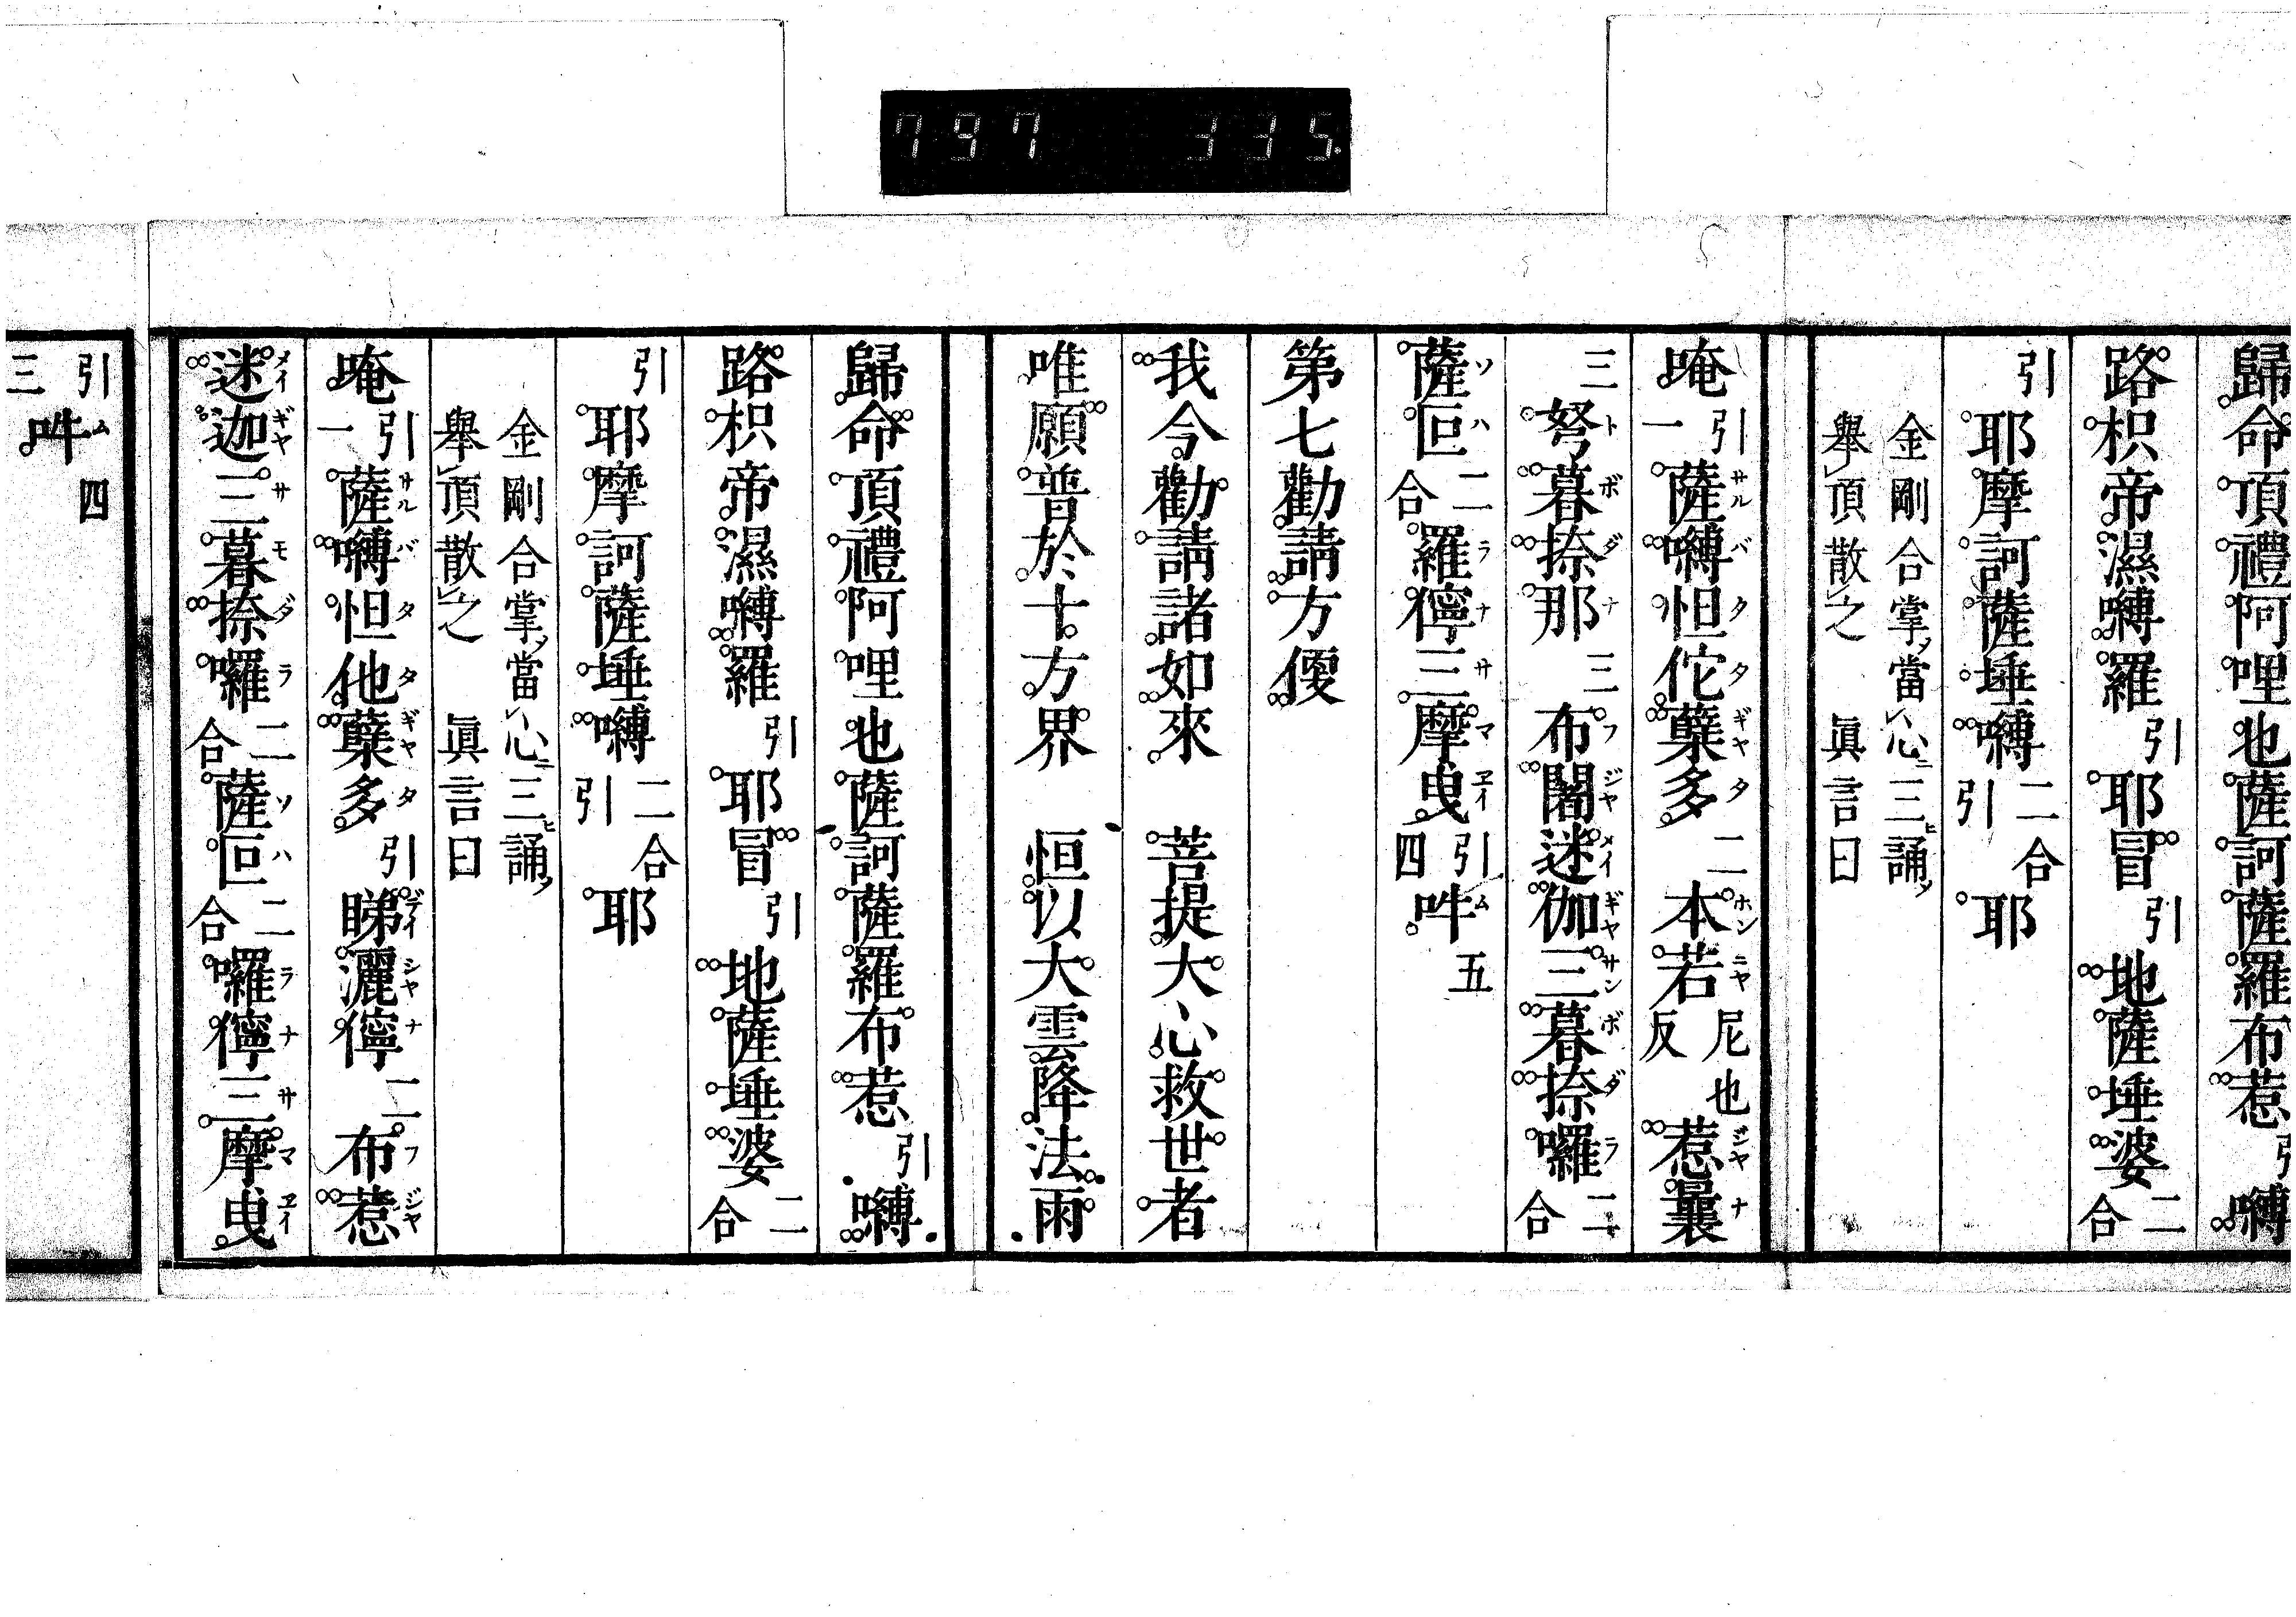 797 335
歸命頂禮阿哩也薩訶薩羅布惹引嚩
路枳帝濕嚩羅引耶冒引地薩埵婆二合
引耶摩訶薩埵嚩二合引耶
金剛合掌ノ當心ニ三ヒ誦ノ
舉頂散之 眞言曰
唵引一薩嚩怛佗蘗多二本若尼也反惹曩
三弩暮捺那三布闍迷伽三暮捺囉二合
薩叵二合羅儜三摩曳引四吽五
第七勸請方便
我今勸請諸如來 菩提大心救世者
唯願普於十方界 恒以大雲降法雨
歸命頂禮阿哩也薩訶薩羅布惹引嚩
路枳帝濕嚩羅引耶冒引地薩埵婆二合
引耶摩訶薩埵嚩二合引耶
金剛合掌ノ當心ニ三ヒ誦ノ
舉頂散之 眞言曰
唵引一薩嚩怛他蘗多引睇灑儜二布惹
迷迦三暮捺囉二合薩叵二合囉儜三摩曳
引三吽四